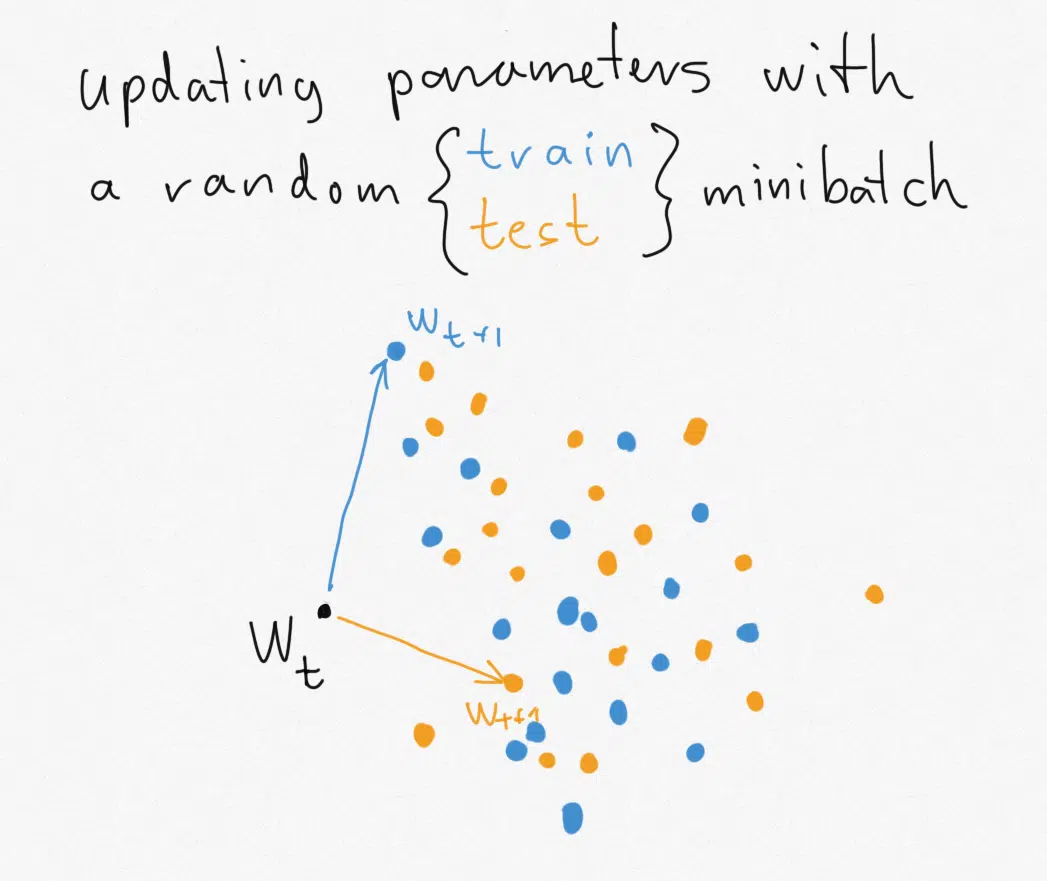 updating parameters with
a random { train } minibatch
test
W_{t+1}
W_t
W_{t+1}